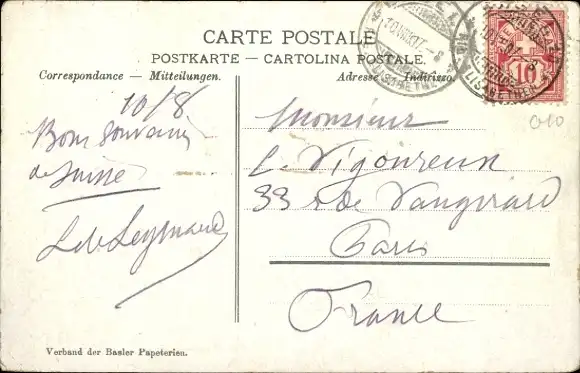 CARTE POSTALE
POSTKARTE — CARTOLINA POSTALE.
Correspondance — Mitteilungen.
Adresse — Indirizzo.
10/8
Bons souvenirs
de Suisse
Monsieur
Le Vigoureux
33 r. de Vaugirard
Paris
France
10
Verband der Basler Papeterien.